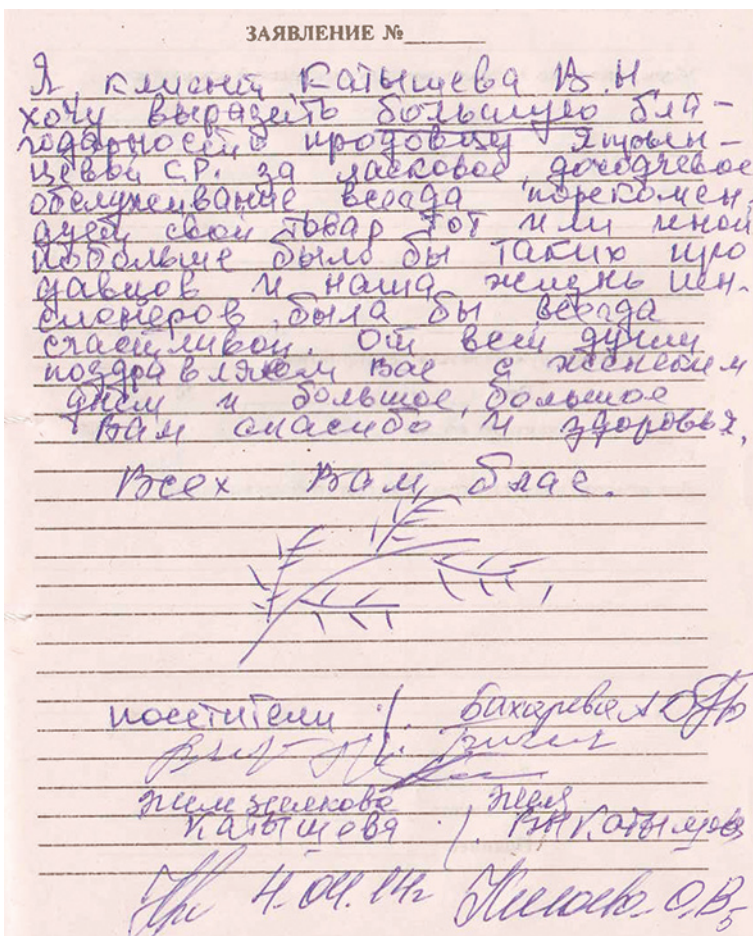 ЗАЯВЛЕНИЕ №
Я, клиент Катышева В.Н.
хочу выразить большую бла-
годарность продовцу
цевой С.Р. за ласковое, доходчевое
обслуживание всегда порекомен,
дует свой товар тот или иной
побольше было бы таких про
давцов и наша жизнь пен-
сионеров была бы всегда
счастливой. От всей души
поздравляем вас с женским
днём и большое, большое
Вам спасибо и здоровья,
Всех Вам благ.
посетители
Катышева
4.04.14г О.В.
5